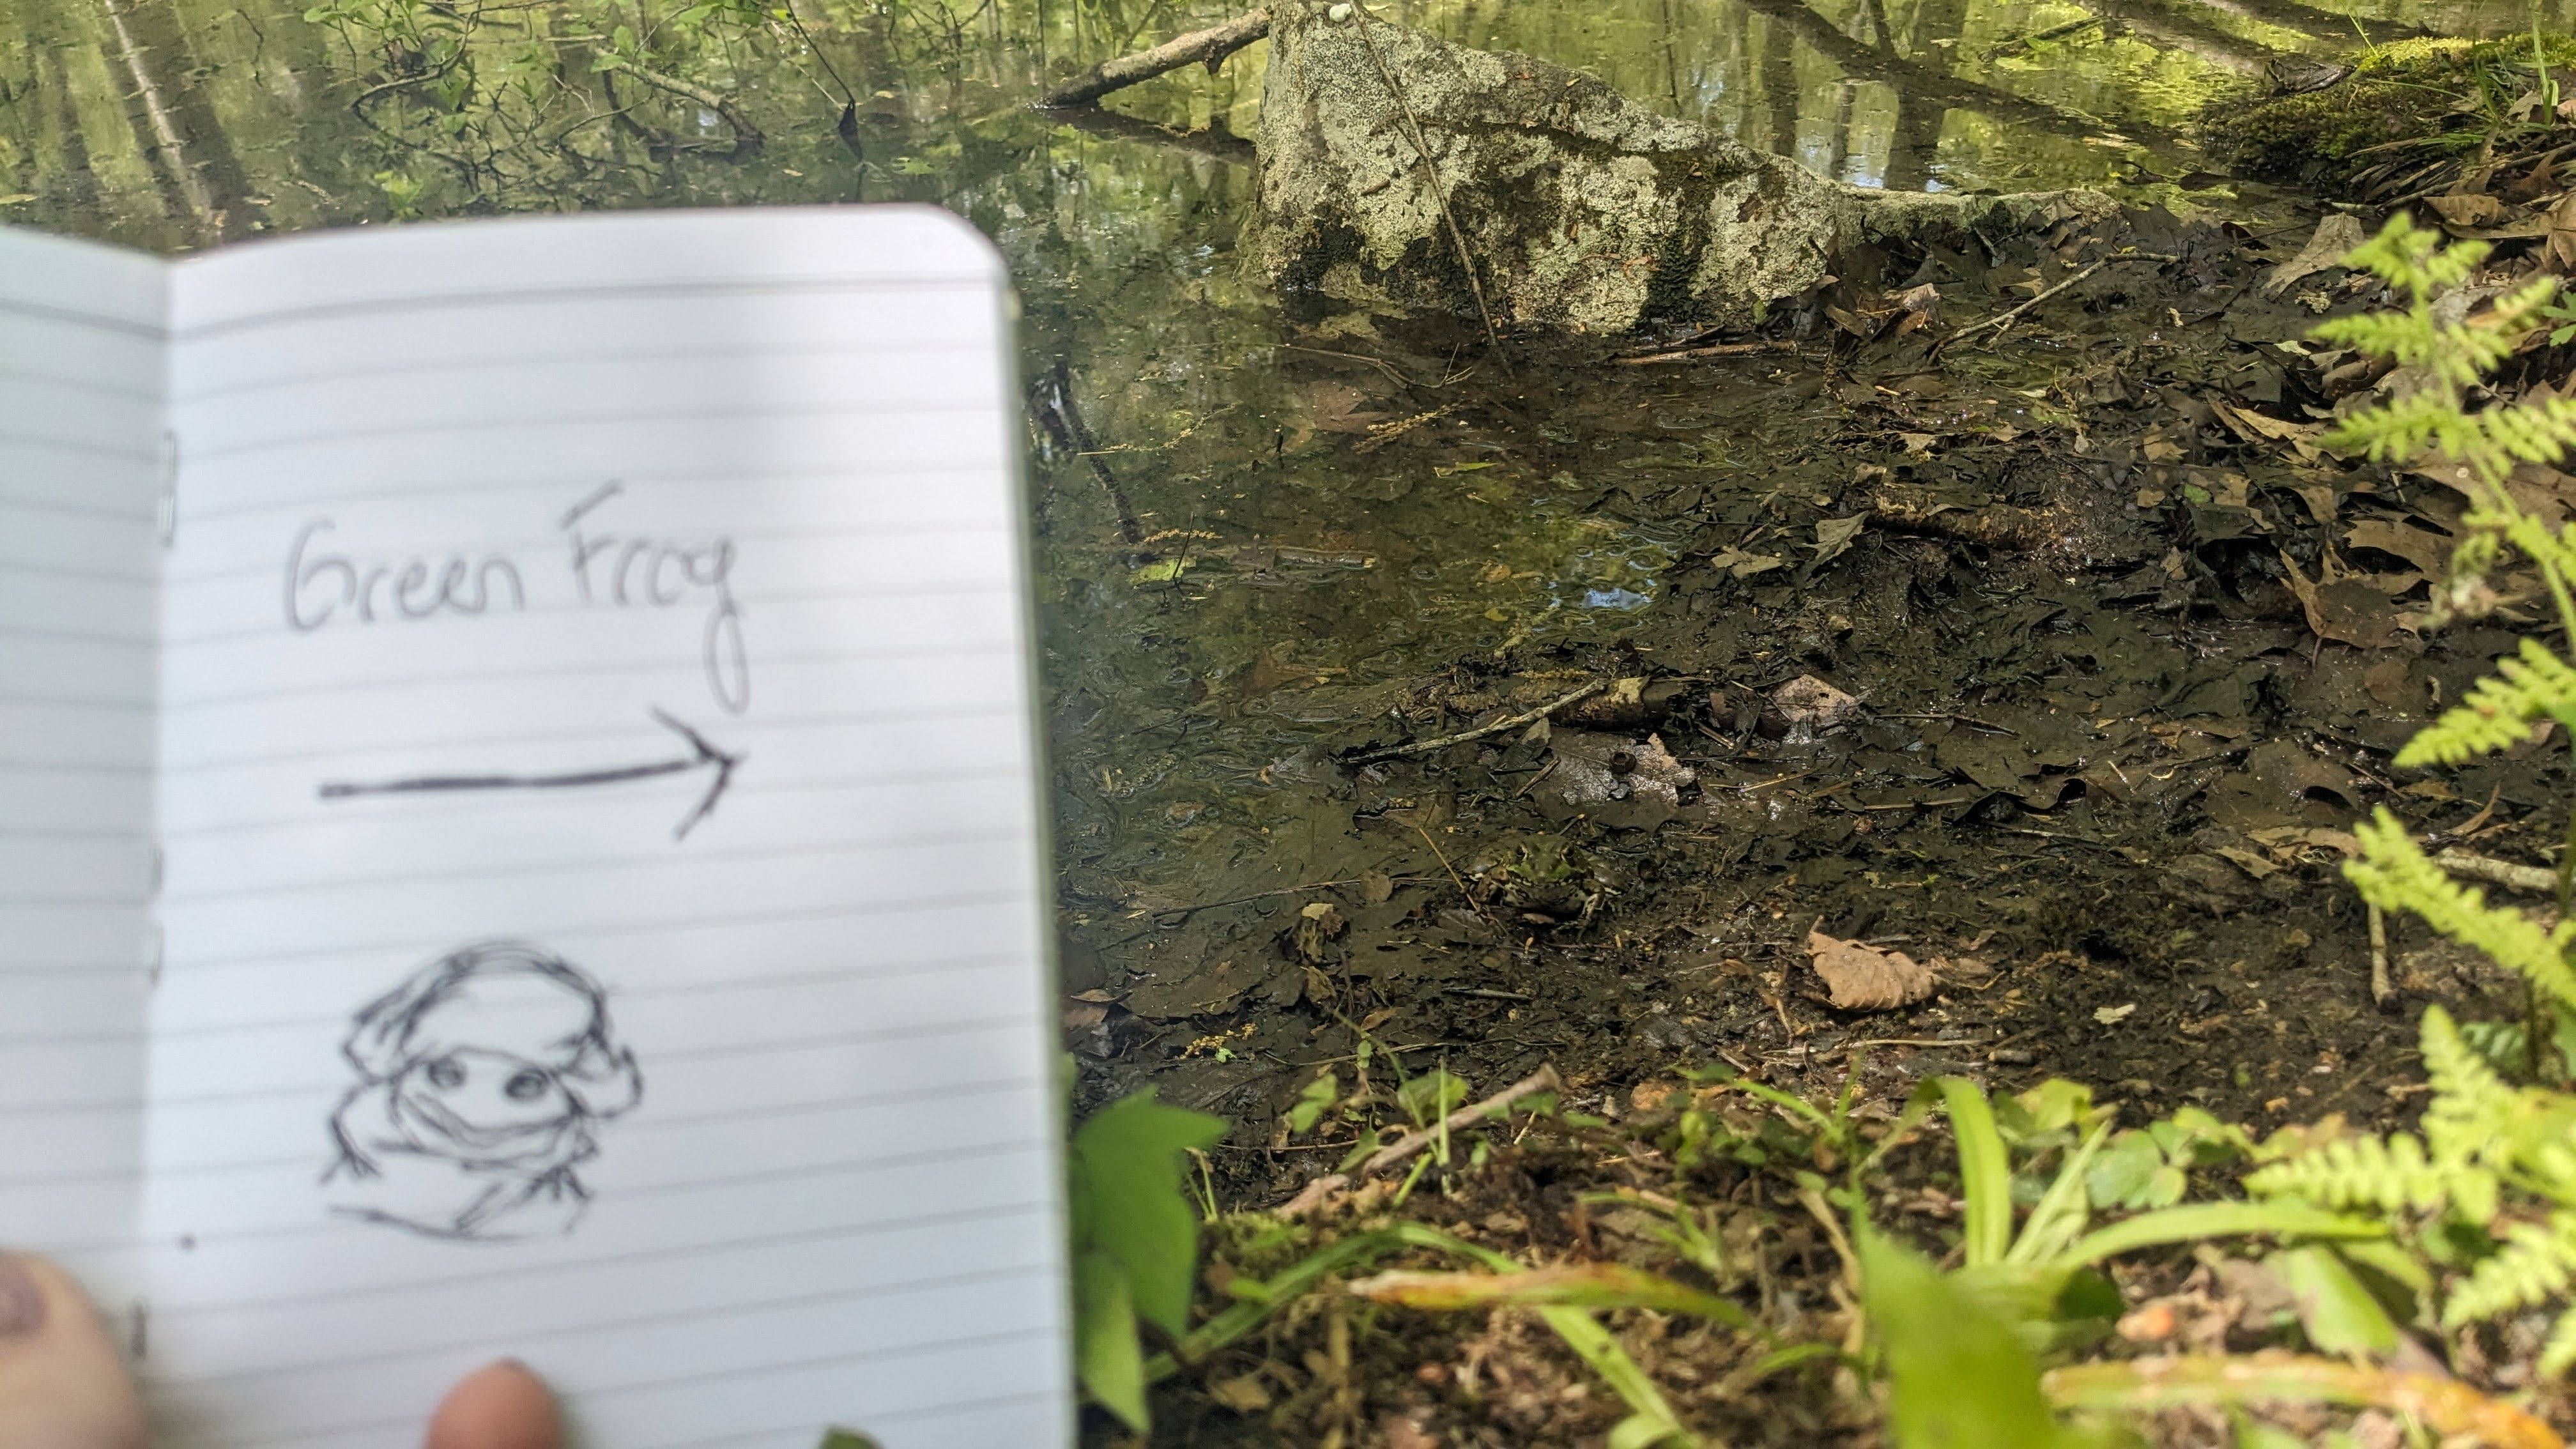 Green Frog